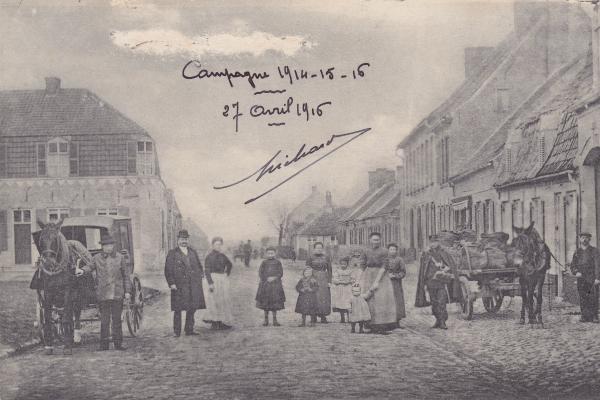 Campagne 1914-15-16
27 Avril 1916
Michard